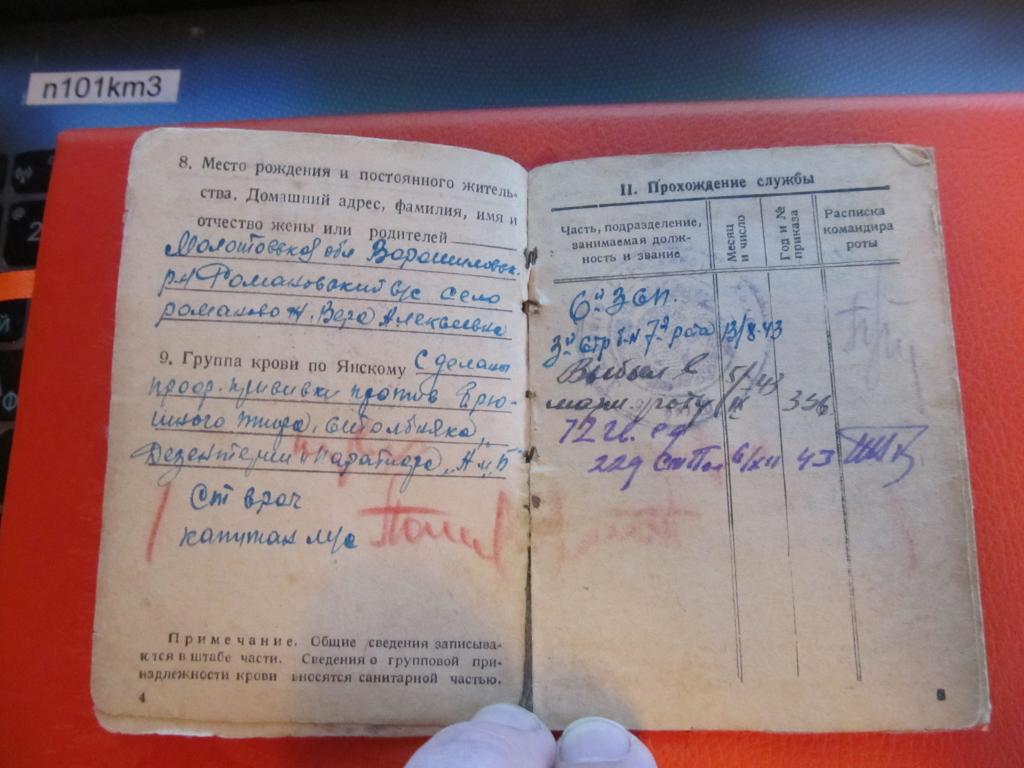 n101km3
8. Место рождения и постоянного житель-
ства. Домашний адрес, фамилия, имя и
отчество жены или родителей
Молотовская обл Ворошиловск.
р-н Романовский с/с село
романово ж. Вера Алексеевна
9. Группа крови по Янскому Сделаны
проф. прививки против Брю-
шного тифа, столбняка,
Дезентерии и паратифа „А и Б"
Ст врач
капитан м/с
Примечание. Общие сведения записыва-
ются в штабе части. Сведения о групповой при-
надлежности крови вносятся санитарной частью.
4
II. Прохождение службы
Часть, подразделение,
занимаемая долж-
ность и звание
Месяц
и число
Год и №
приказа
Расписка
командира
роты
6й ЗСП.
3й стр б-н 7я рота 13/8-43
Выбыл в
марш. роту 356
72 гв. сд
229 Сп 6/XII 43
5